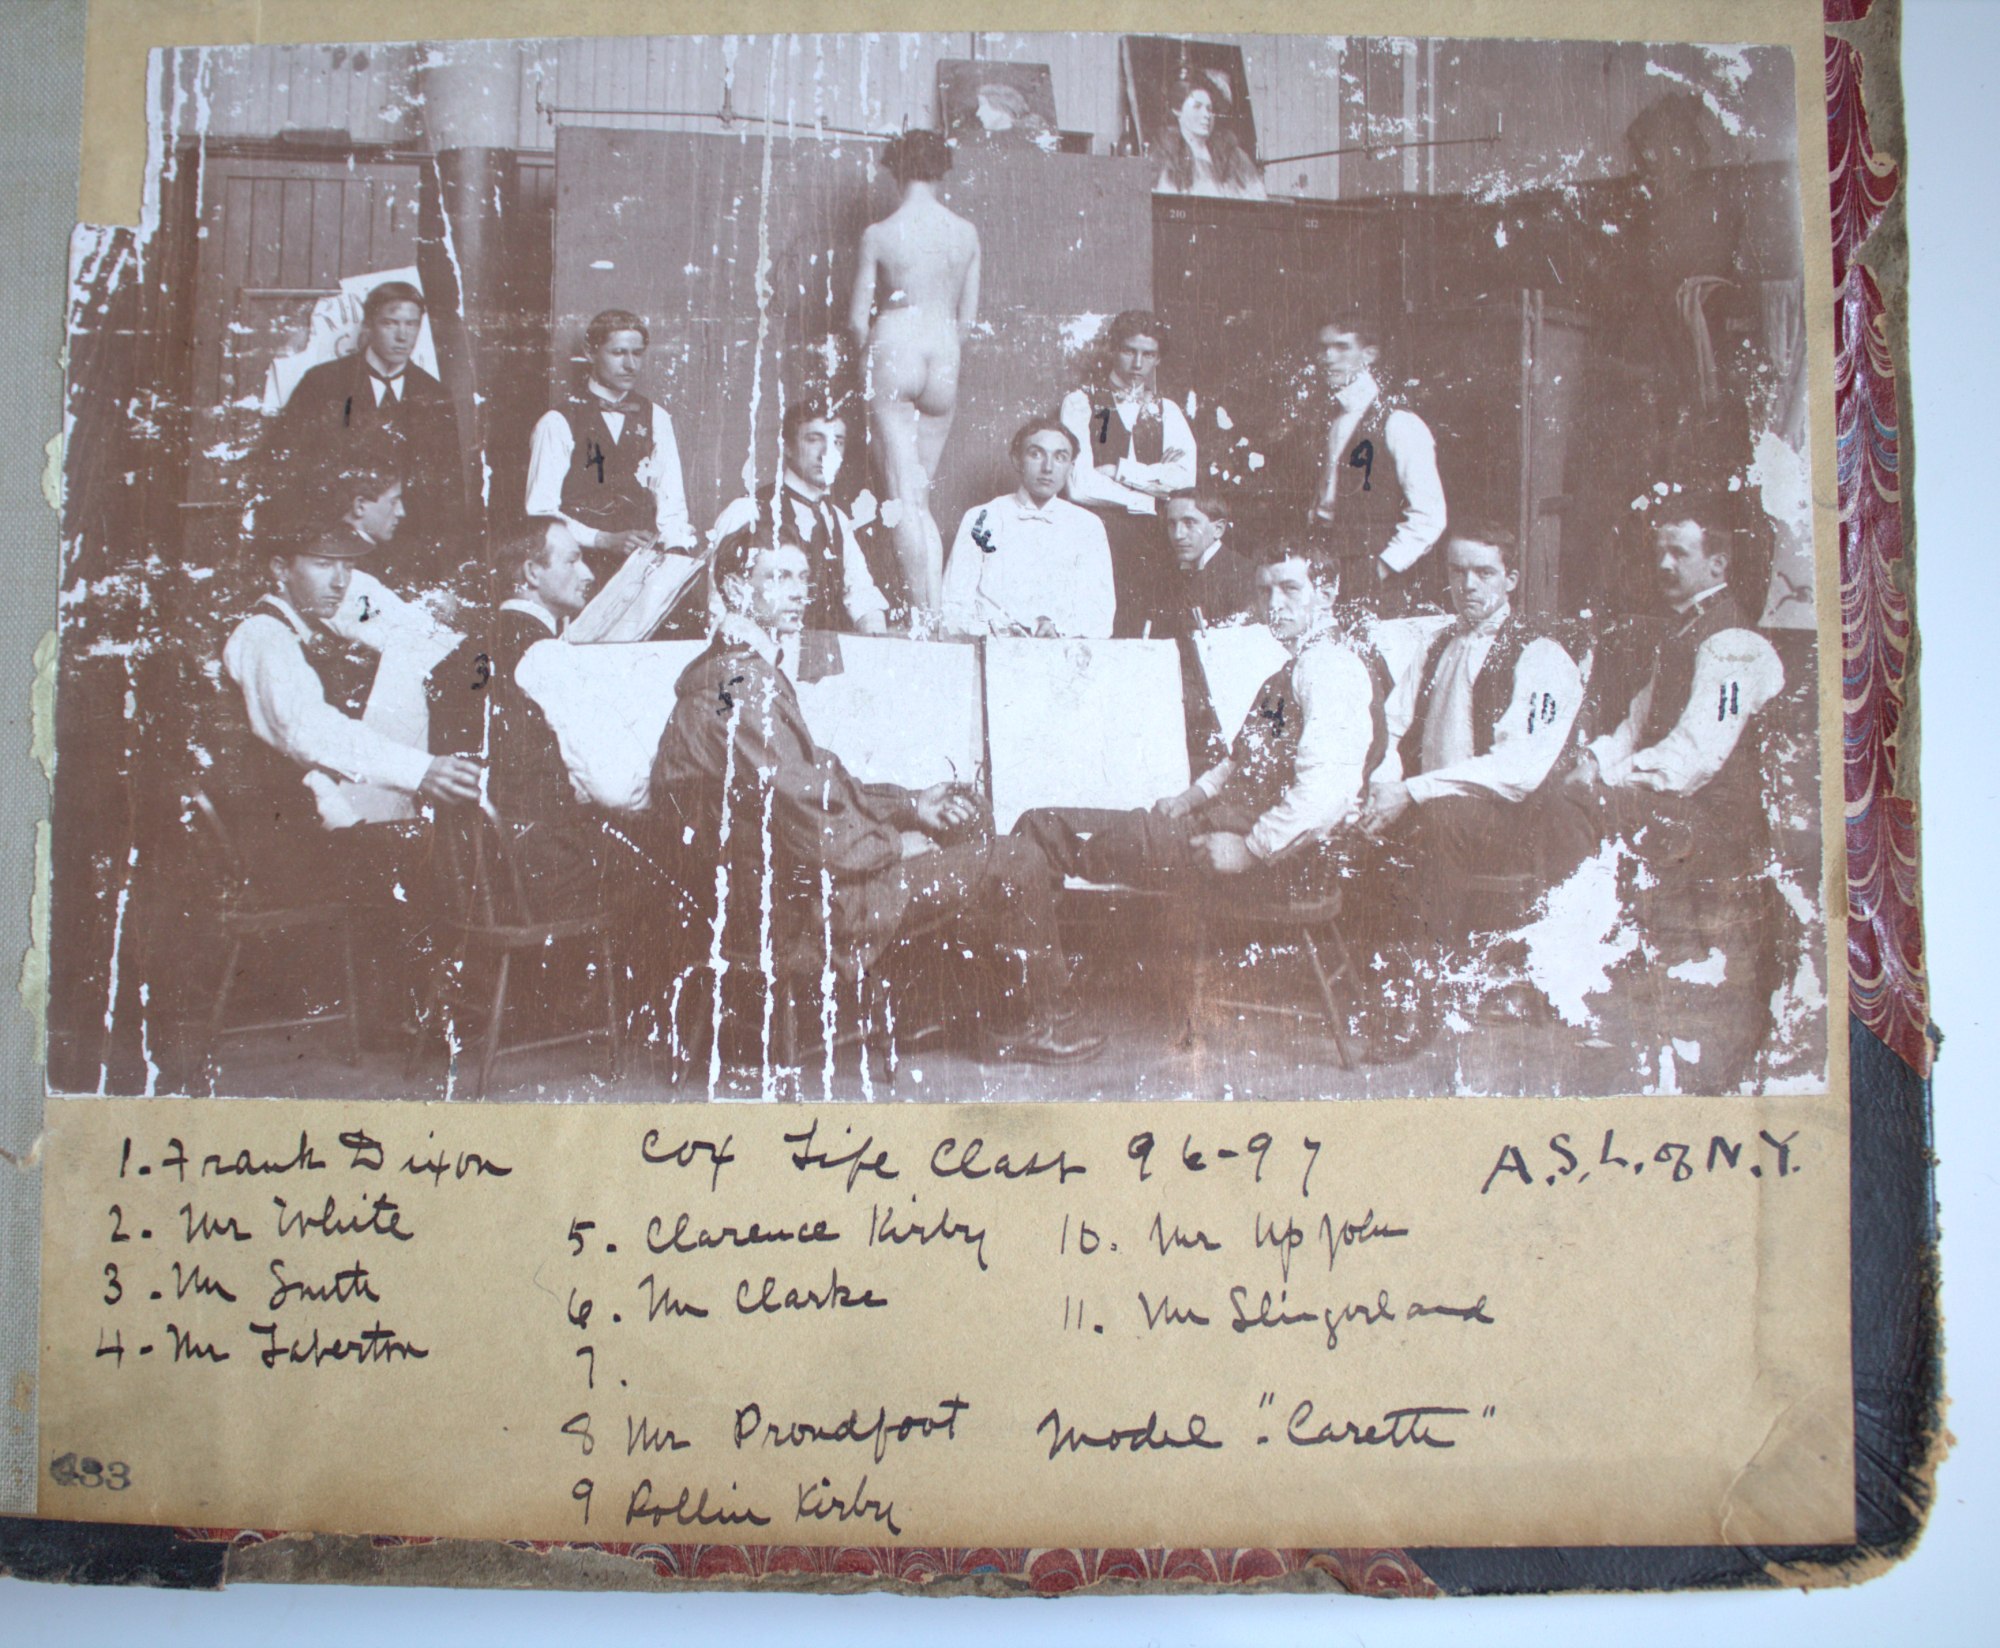 210
212
1
4
7
9
6
2
3
5
4
10
11
Cox Life Class 96-97
A.S.L. of N.Y.
1. Frank Dixon
2. Mr White
3. Mr Smith
4. Mr
5. Clarence Kirby
6. Mr Clarke
7.
8 Mr Proudfoot
9 Rollin Kirby
10. Mr Upjohn
11. Mr Slingerland
Model "Carette"
433